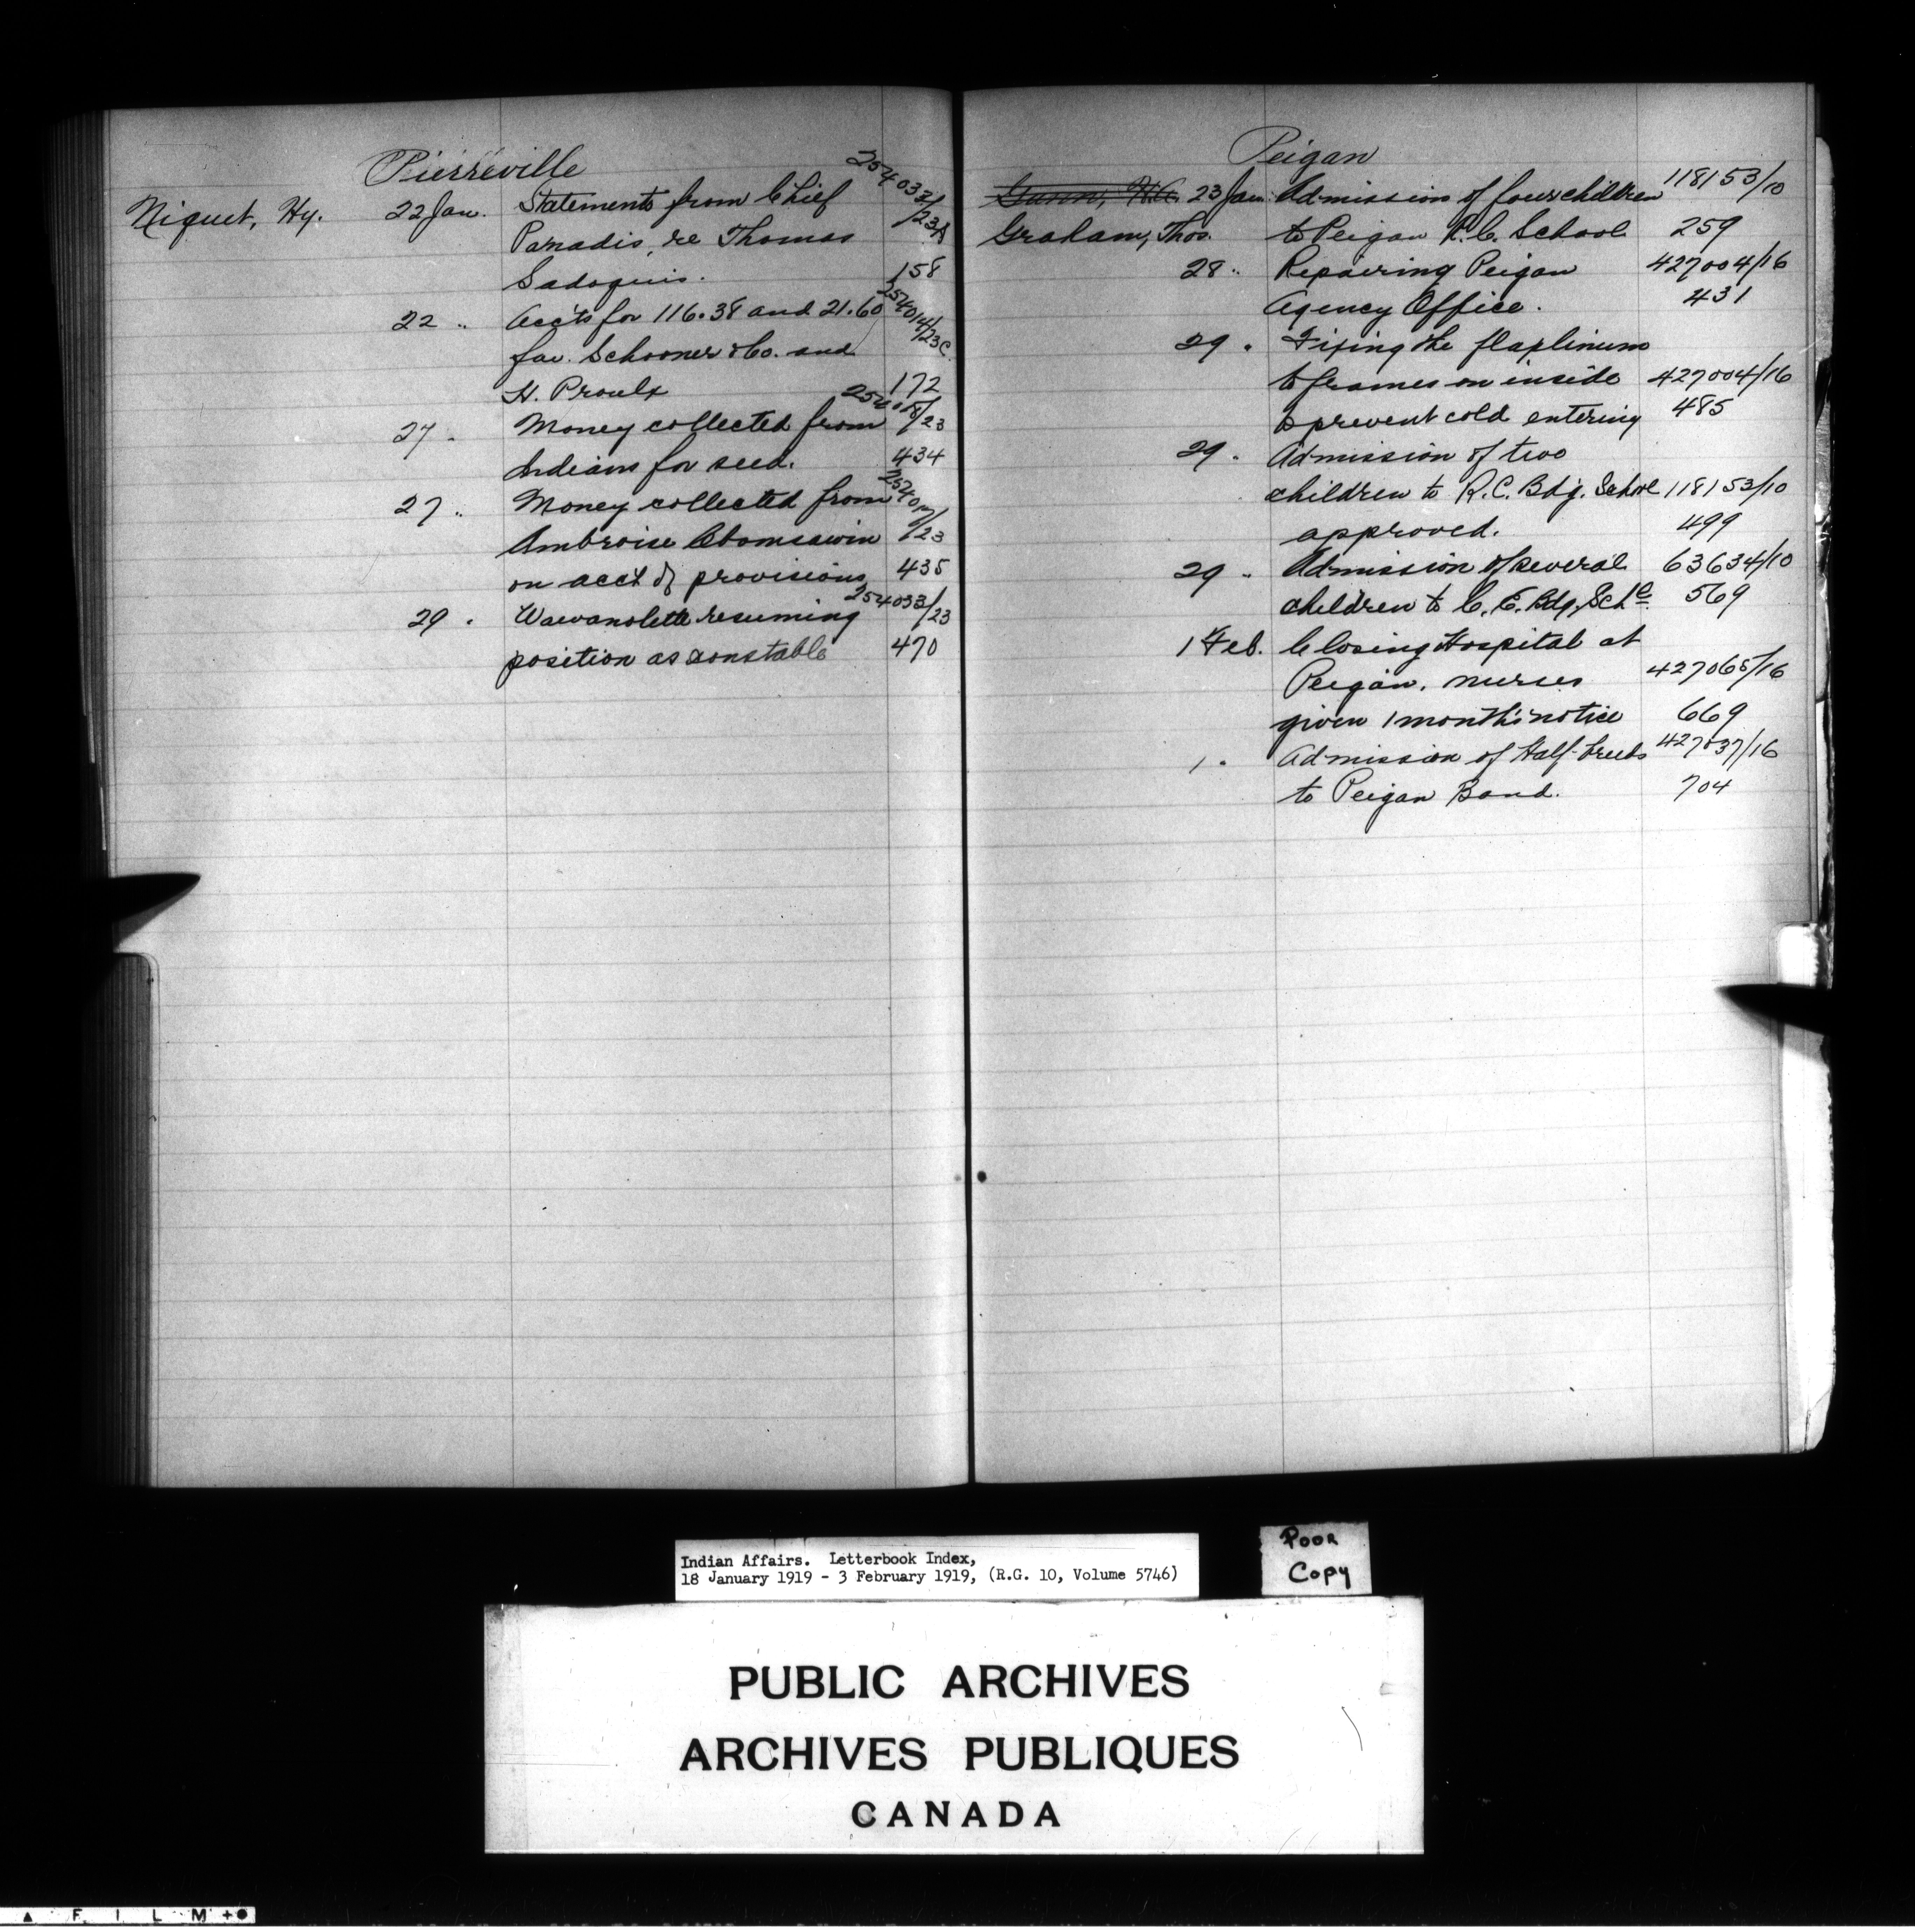 Pierreville
254033/23A
Niquet, Hy. 22 Jan. Statements from Chief
Panadis, re Thomas
Sadoquis. 158
22 " Acc'ts for 116.38 and 21.60 254014/23C
fav. Schooner & Co. and
H. Proulx 172
27 " Money collected from /23
Indians for seed. 434
27 " Money collected from
Ambroise Obomsawin /23
on acct of provisions 435
29 " Wawanolette resuming 254033/23
position as constable 470
Peigan
Gunn, 23 Jan. Admission of four children 118153/10
Graham, Thos. to Peigan R.C. School 259
28 " Repairing Peigan 427004/16
Agency Office. 431
29 " Fixing the
to frames on inside 427004/16
to prevent cold entering 485
29 " Admission of two
children to R.C. Bdg. School 118153/10
approved. 499
29 " Admission of several 63634/10
children to C.E. Bdg. Schl 569
1 Feb. Closing Hospital at
Peigan. nurses 427065/16
given 1 month's notice 669
1 " Admission of Half-breeds 427037/16
to Peigan Band. 704
Indian Affairs. Letterbook Index,
18 January 1919 - 3 February 1919, (R.G. 10, Volume 5746)
Poor
Copy
PUBLIC ARCHIVES
ARCHIVES PUBLIQUES
CANADA
FILM